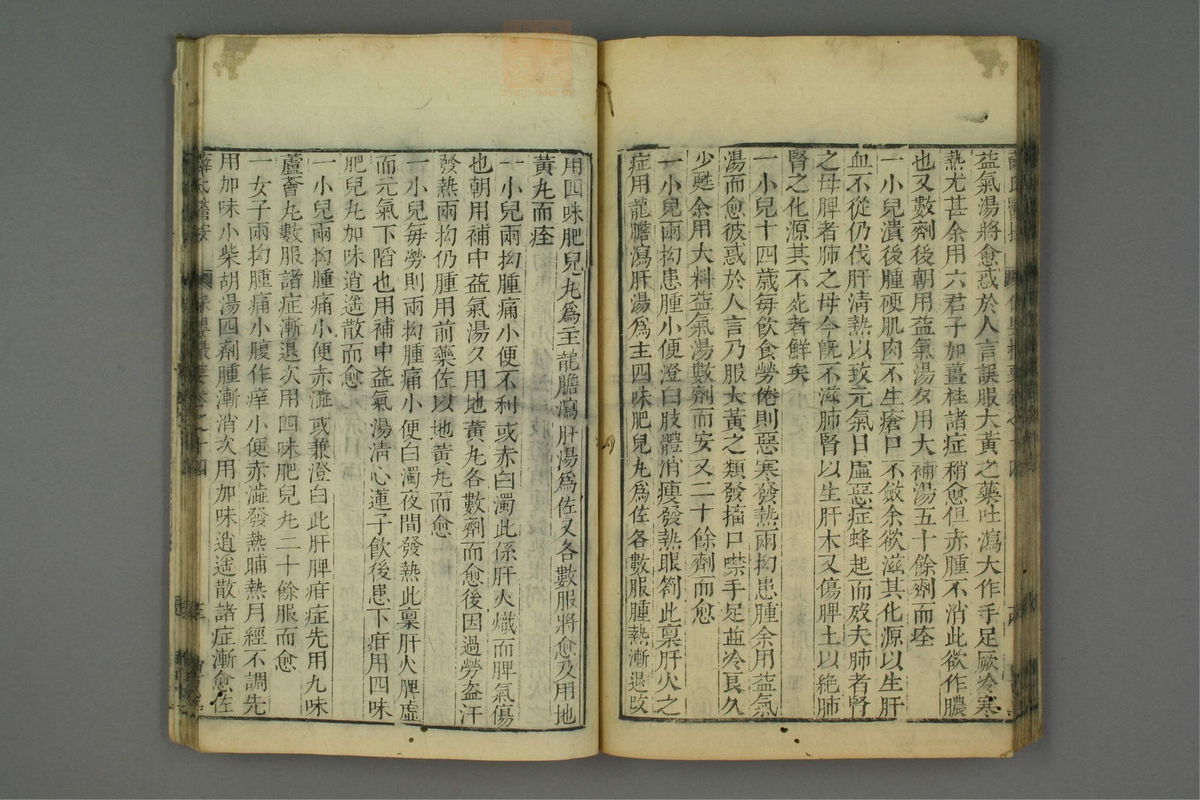 益氣湯將愈惑於人言誤服大黃之藥吐瀉大作手足厥冷寒
熱尤甚余用六君子加薑桂諸症稍愈但赤腫不消此欲作膿
也又數劑後朝用益氣湯夕用大補湯五十餘劑而痊
一小兒潰後腫硬肌肉不生瘡口不斂余欲滋其化源以生肝
血不從仍伐肝清熱以致元氣日虛惡症蜂起而歿夫肺者腎
之母脾者肺之母今旣不滋肺腎以生肝木又傷脾土以絶肺
腎之化源其不死者鮮矣
一小兒十四歲每飲食勞倦則惡寒發熱兩抝患腫余用益氣
湯而愈彼惑於人言乃服大黃之類發搐口噤手足並冷良久
少甦余用大料益氣湯數劑而安又二十餘劑而愈
一小兒兩抝患腫小便澄白肢體消瘦發熱眼劄此稟肝火之
症用龍膽瀉肝湯爲主四味肥兒丸爲佐各數服腫熱漸退改
用四味肥兒丸爲主龍膽瀉肝湯爲佐又各數服將愈及用地
黃丸而痊
一小兒兩抝腫痛小便不利或赤白濁此係肝火熾而脾氣傷
也朝用補中益氣湯夕用地黃丸各數劑而愈後因過勞盜汗
發熱兩抝仍腫用前藥佐以地黃丸而愈
一小兒每勞則兩抝腫痛小便白濁夜間發熱此稟肝火脾虛
而元氣下陷也用補中益氣湯淸心蓮子飲後患下疳用四味
肥兒丸加味逍遙散而愈
一小兒兩抝腫痛小便赤澁或兼澄白此肝脾疳症先用九味
蘆薈丸數服諸症漸退次用四味肥兒丸二十餘服而愈
一女子兩抝腫痛小腹作痒小便赤澁發熱晡熱月經不調先
用加味小柴胡湯四劑腫漸消次用加味逍遙散諸症漸愈佐
薛氏醫按